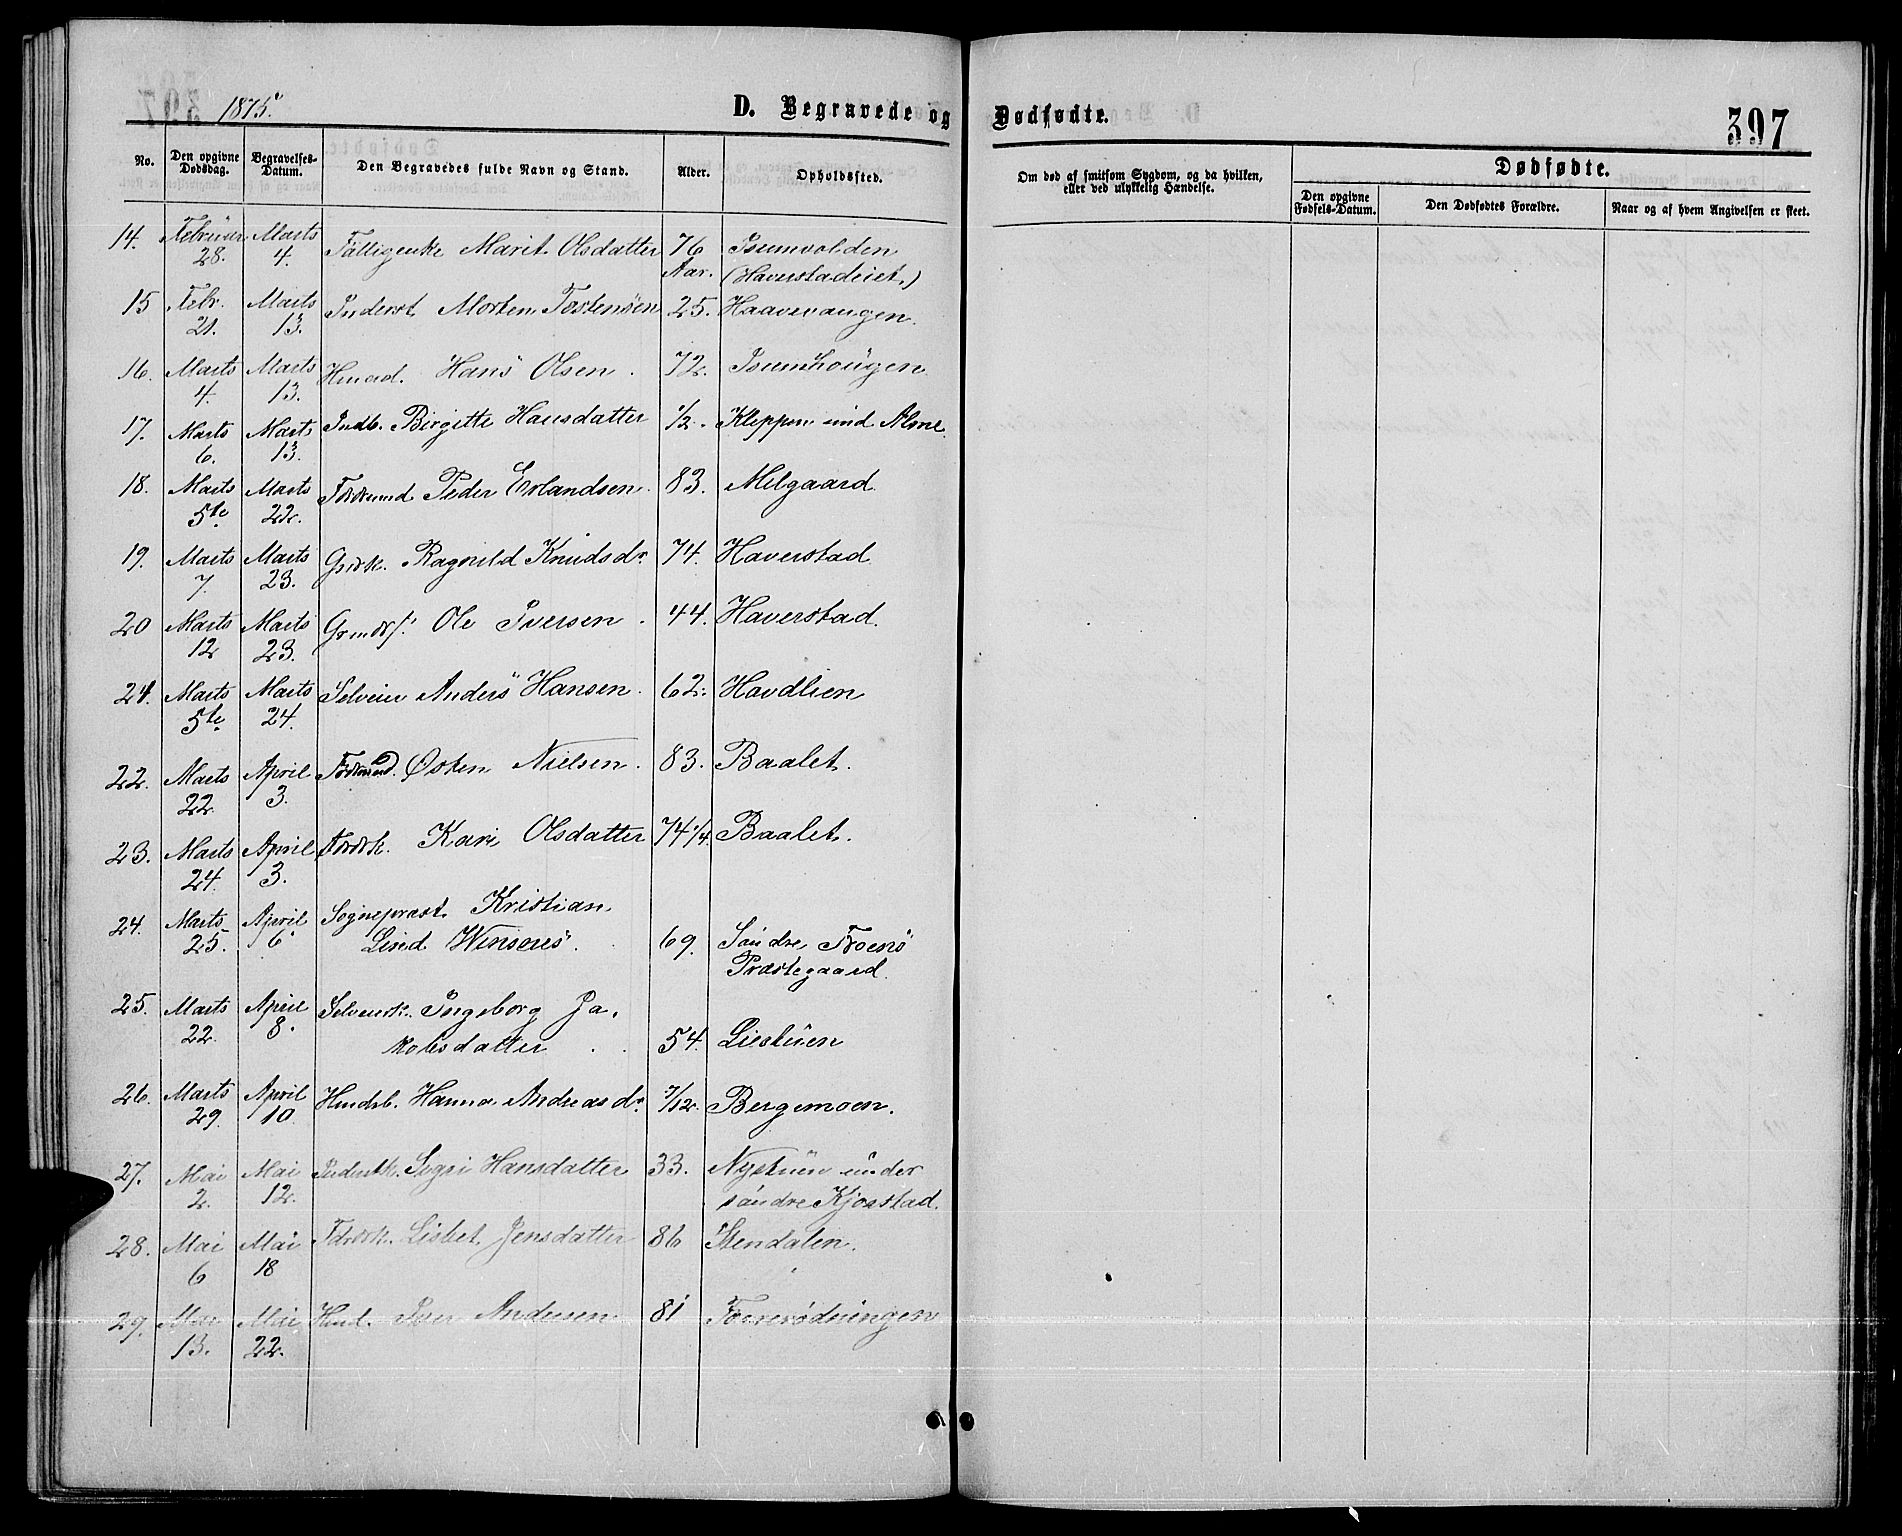 1875.
D. Begravede og Dødfødte.
397
No.
Den opgivne Dødsdag.
Begravelses-Datum.
Den Begravedes fulde Navn og Stand.
Alder.
Opholdssted.
Om død af smitsom Sygdom, og da hvilken, eller ved ulykkelig Hændelse.
Dødfødte.
Den opgivne Fødsels-Datum.
Den Dødfødtes Forældre.
Naar og af hvem Angivelsen er skeet.
14. Februar 28. Marts 4. Fattigenke Marit Olsdatter 76 Aar. Isumvolden
(Haverstadeiet.)
15 Febr. 21. Marts 13. Inderst Morten Tostensen 25. Haavevangen.
16. Marts 4. Marts 13. Hmd. Hans Olsen. 72. Isumhougen
17. Marts 6. Marts 13. Indb. Birgitte Hansdatter 1/2. Kleppen und Alme.
18. Marts 5te Marts 22. Foermd Peder Erlandsen. 83. Melgaard.
19. Marts 7. Marts 23. Grdk. Ragnild Knudsdr 74. Haverstad
20 Marts 12 Marts 23. Grmds. Ole Iversen. 44. Haverstad.
21. Marts 5te Marts 24. Selveier Anders Hansen. 62. Havdlien
22. Marts 22. April 3. Foermd. Østen Nielsen. 83. Baalet.
23. Marts 24. April 3. Foerk. Kari Olsdatter 74 1/4. Baalet.
24. Marts 25. April 6. Sognepræst Kristian
Lind Winsnes. 69. Söndre Froens
Præstegaard.
25. Marts 22. April 8. Selveierk. Ingeborg Ja-
kobsdatter 54. Liestuen
26. Marts 29. April 10. Hmdsb. Hanna Andreasdr 7/12. Bergemoen.
27. Mai 2. Mai 12. Inderstk. Sigri Hansdatter 33. Nystuen under
söndre Kjorstad.
28. Mai 6 Mai 18 Foerk. Lisbet Jensdatter 86 Stendalen.
29. Mai 13. Mai 22. Hmd. Iver Andersen 81